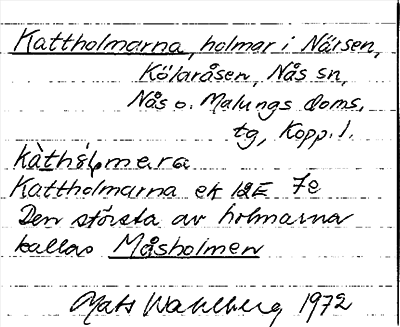 Kattholmarna, holmar i Närsen,
Kölaråsen, Nås sn,
Nås o. Malungs doms.
tg, Kopp. l.
Kattholmarna ek 12E 7e
Den största av holmarna
kallas Måsholmen
Mats Wahlberg 1972